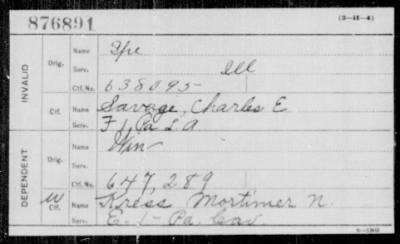 876891
(3-II-4)
INVALID
Orig.
Name
Serv.
Ill
Ctf. No. 638095
Ctf.
Name Savage, Charles E
Serv. F 1, Pa L A
DEPENDENT
Orig.
Name
Serv.
Ctf. No. 647,289
W
Ctf.
Name Kress Mortimer N.
Serv. E. 1- Pa. Cav.